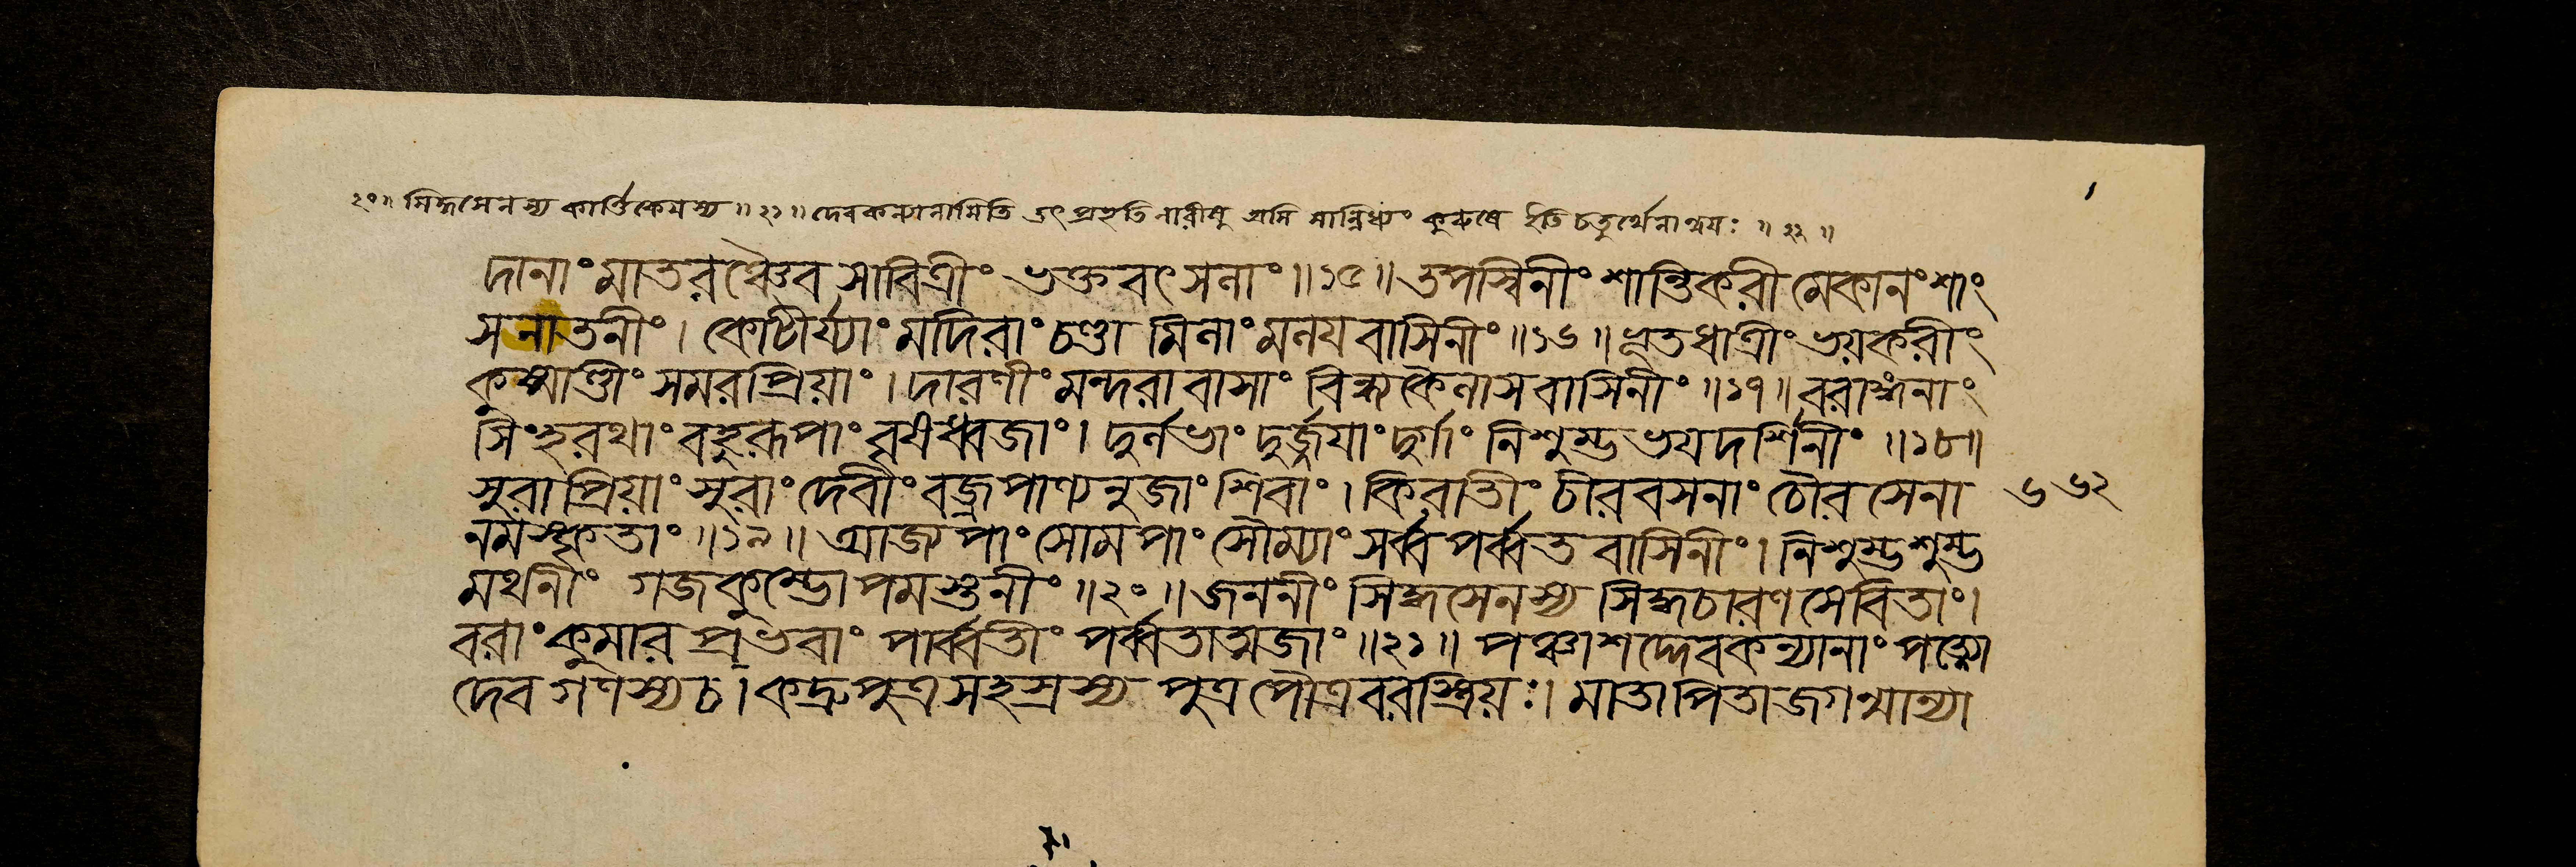 ২০॥ সিদ্ধসেনস্য কার্ত্তিকেয়স্য ॥ ২১॥ দেবকন্যানামিতি তৎ প্রভৃতি নারীষু অসি সান্নিধ্যং কুরুষে ইতি চতুর্থেনান্বয়ঃ ॥ ২২ ॥
দানাং মাতরঞ্চৈব সাবিত্রীং ভক্তবৎসলাং ॥১৫॥ তপস্বিনীং শান্তিকরীমেকানংশাং
সনাতনীং। কোটীর্য্যাং মদিরাং চণ্ডামিলাং মলয়বাসিনীং ॥১৬॥ ভূতধাত্রীং ভয়করীং
কুষ্মাণ্ডীং সমরপ্রিয়াং। দারণীং মন্দরাবাসাং বিন্ধ্যকৈলাসবাসিনীং ॥১৭॥ বরাঙ্গনাং
সিংহরথাং বহুরূপাং বৃষধ্বজাং। দুর্লভাং দুর্জ্জয়াং দুর্গাং নিশুম্ভভয়দর্শিনীং ॥১৮॥
সুরাপ্রিয়াং সুরাং দেবীং বজ্রপাণ্যনুজাং শিবাং। কিরাতীং চীরবসনাং চৌরসেনা ৬৬২
নমস্কৃতাং ॥১৯॥ আজ্যপাং সোমপাং সৌম্যাং সর্ব্বপর্ব্বতবাসিনীং। নিশুম্ভশুম্ভ
মথনীং গজকুম্ভোপমস্তনীং ॥২০॥ জননীং সিদ্ধসেনস্য সিদ্ধচারণসেবিতাং।
বরাং কুমারপ্রভবাং পার্ব্বতীং পর্ব্বতাত্মজাং ॥২১॥ পঞ্চাশদ্দেবকন্যানাং পত্ন্যো
দেবগণস্য চ। কদ্রুপুত্রসহস্রস্য পুত্রপৌত্রবরস্ত্রিয়ঃ। মাতাপিতা জগন্মান্যা